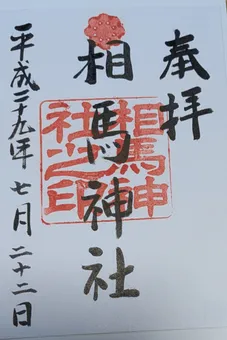 奉拝
相馬神社
相馬神
社之印
平成二九年七月二十二日